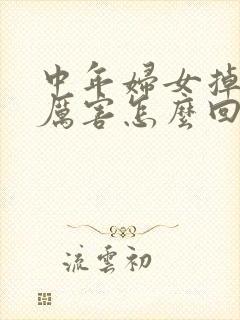 中年婦女掉
厲害怎麼回
流雲初